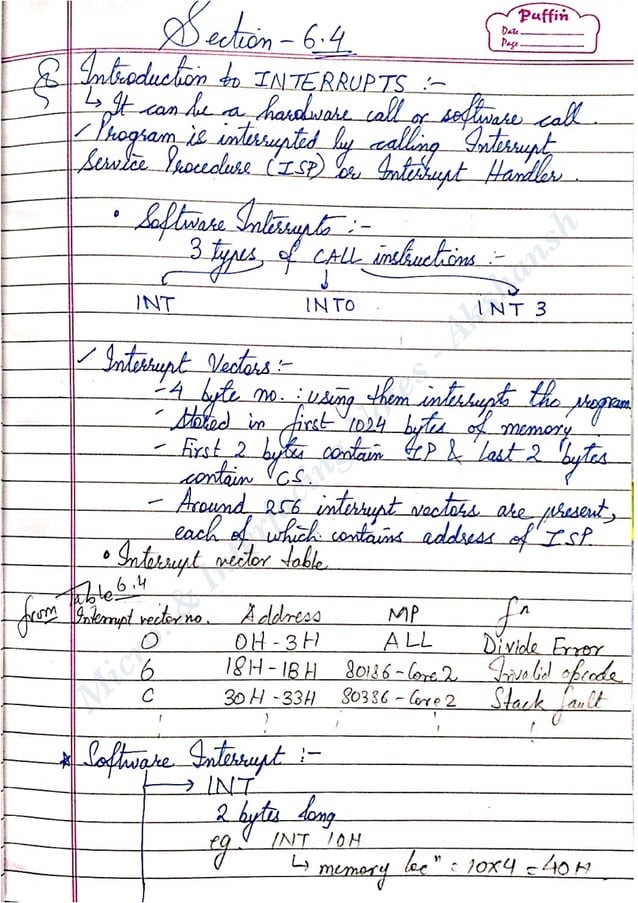 Puffin
Date
Page
Section - 6.4
Introduction to INTERRUPTS :-
↳ It can be a hardware call or software call.
✓ Program is interrupted by calling Interrupt
Service Procedure (ISP) or Interrupt Handler.
• Software Interrupts :-
3 types of CALL instructions :-
INT INTO INT 3
✓ Interrupt Vectors :-
- 4 byte no. : using them interrupts the program
- Stored in first 1024 bytes of memory
- First 2 bytes contain IP & last 2 bytes
contain CS.
- Around 256 interrupt vectors are present,
each of which contains address of ISP.
• Interrupt vector table
from Table 6.4
Interrupt vector no. Address MP fn
0 0H-3H ALL Divide Error
6 18H-1BH 80186-Core2 Invalid opcode
C 30H-33H 80386-Core2 Stack fault
* Software Interrupt :-
→ INT
2 bytes long
eg. INT 10H
↳ memory locn = 10x4 = 40H
Micro. & Interfacing Notes - Akshansh